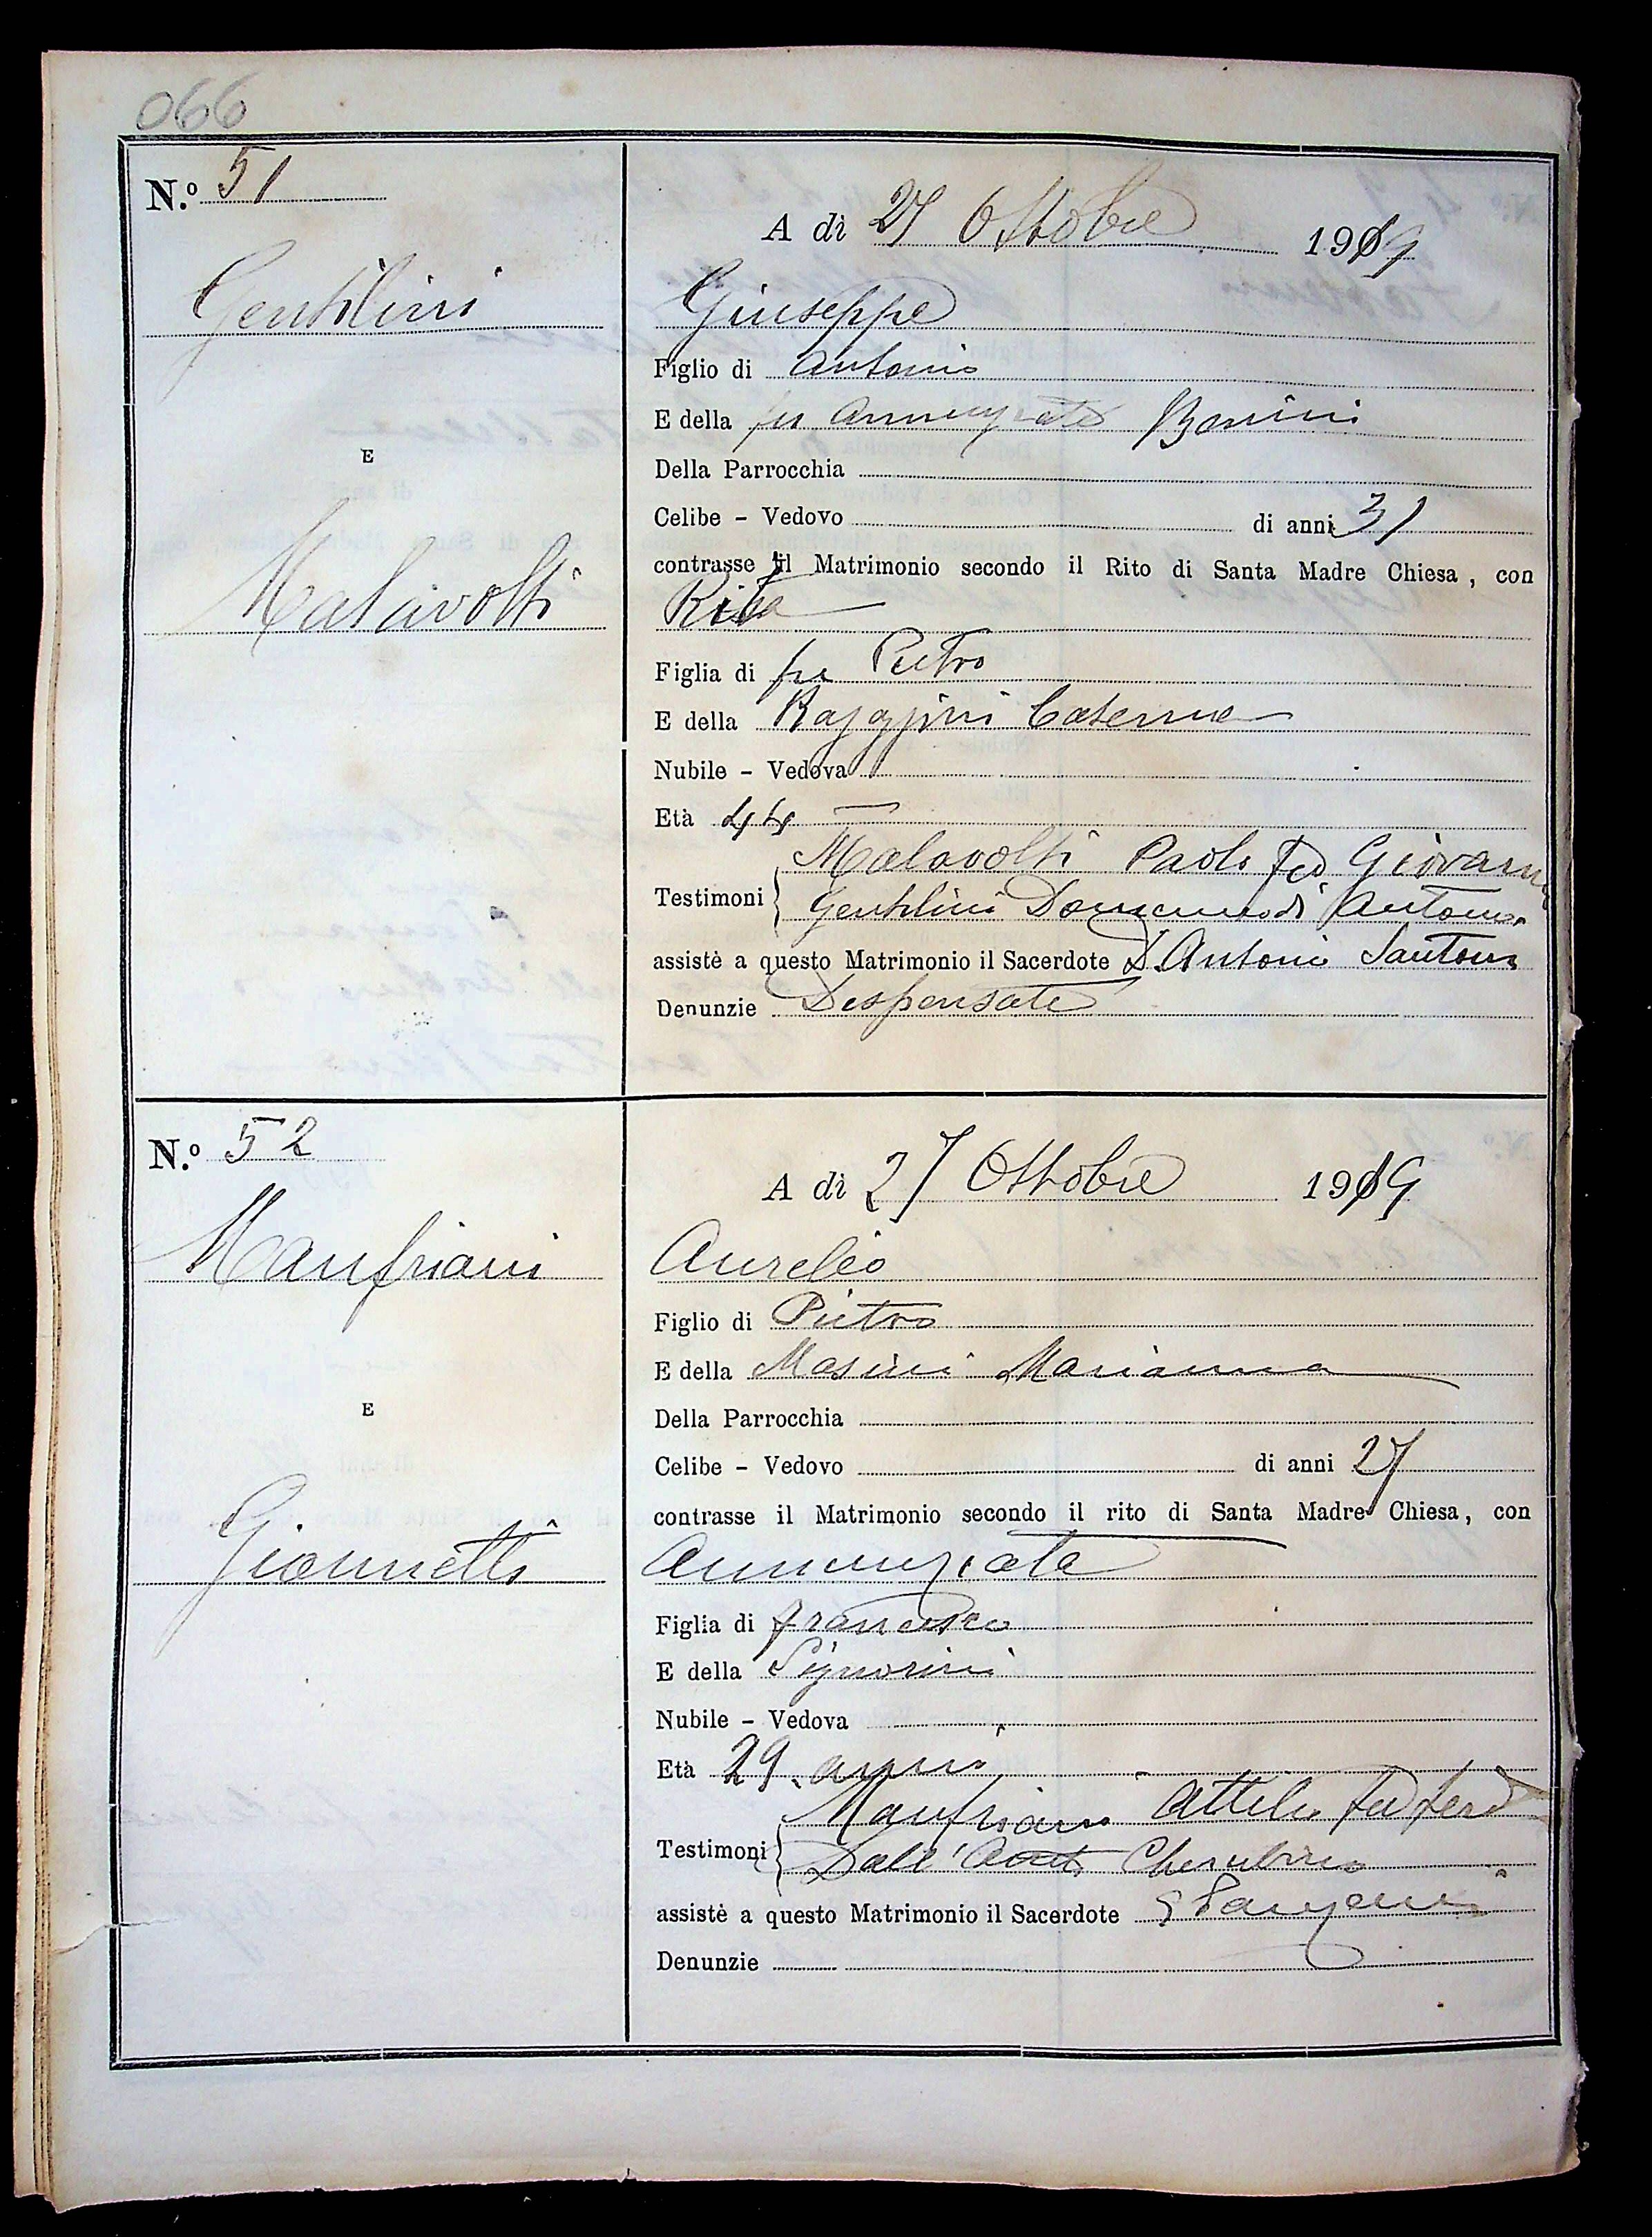 066
N.º 51
A dì 27 Ottobre 1919
Gentilini
Giuseppe
Figlio di Antonio
E della fu Annunziata Bonini
Della Parrocchia
E
Celibe - Vedovo di anni 31
contrasse il Matrimonio secondo il Rito di Santa Madre Chiesa, con
Malavolti
Rita
Figlia di fu Pietro
E della Raggini Caterina
Nubile - Vedova
Età 44
Malavolti Paolo fu Giovanni
Testimoni
Gentilini Domenico di Antonio
assistè a questo Matrimonio il Sacerdote D. Antonio Santoni
Denunzie Dispensate
N.º 52
A dì 27 Ottobre 1919
Manfriani
Aurelio
Figlio di Pietro
E della Masini Marianna
E
Della Parrocchia
Celibe - Vedovo di anni 27
contrasse il Matrimonio secondo il rito di Santa Madre Chiesa, con
Giannetti
Annunziata
Figlia di Francesco
E della Signorini
Nubile - Vedova
Età 29 anni
Manfriani Attilio fu Ferd
Testimoni
Dall' Cherubino
assistè a questo Matrimonio il Sacerdote
Denunzie